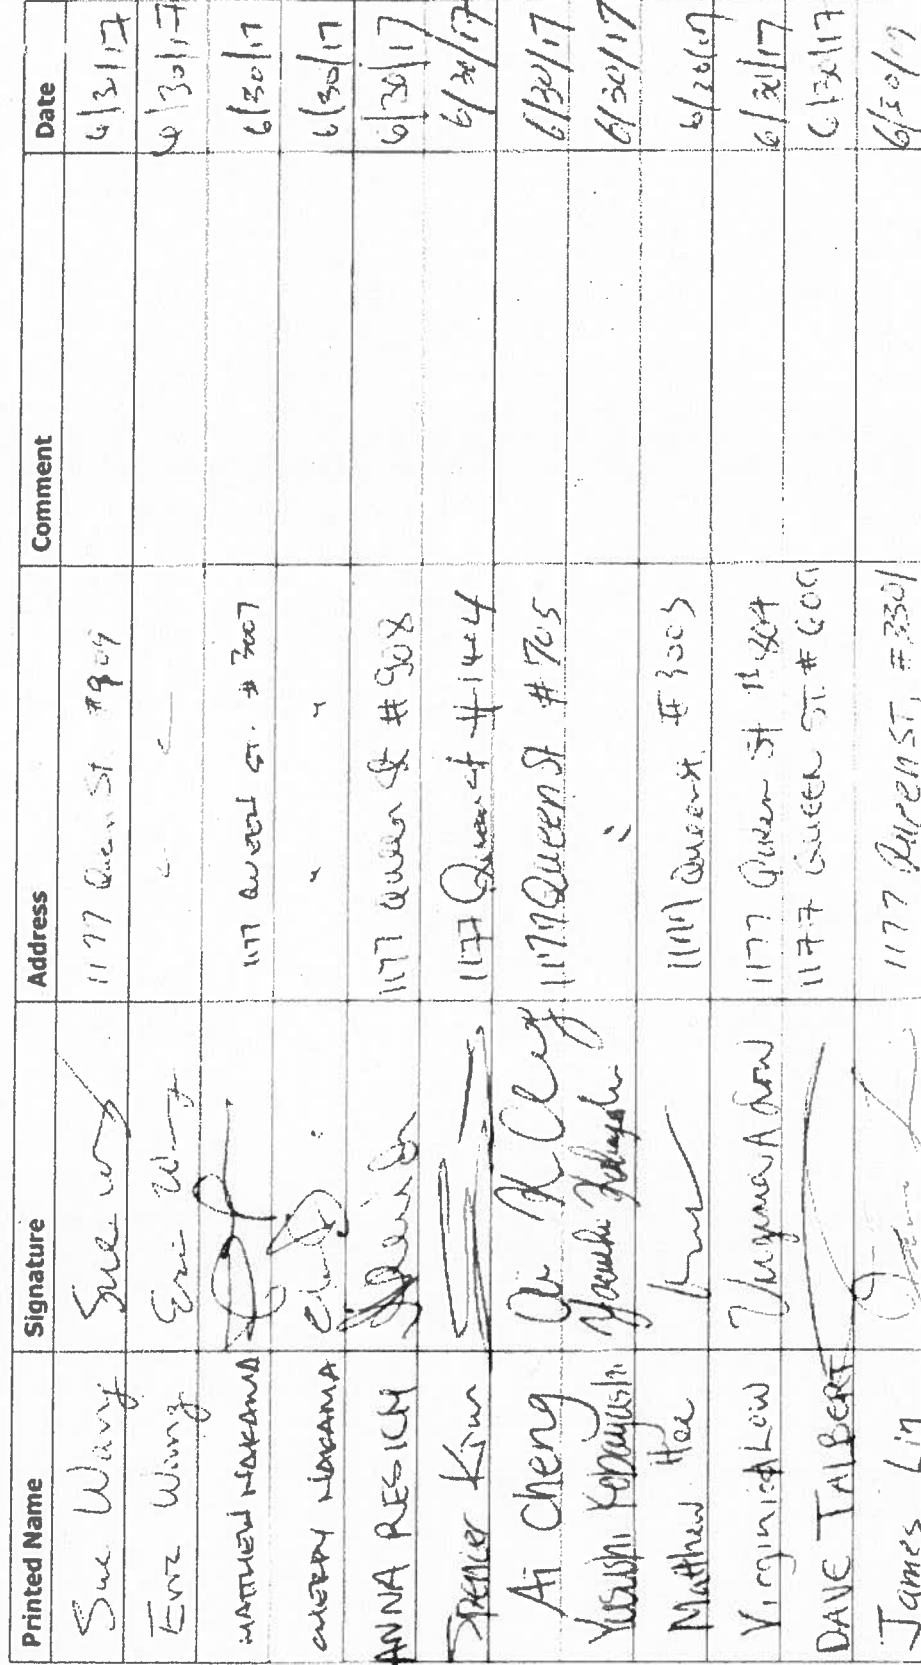 Printed Name Signature Address Comment Date
Sue Wang Sue Wang 1177 Queen St #909 6/30/17
Eric Wang Eric Wang 6/30/17
MATTHEW NAKAMA 1177 QUEEN ST. # 3007 6/30/17
CHERRY NAKAMA " " 6/30/17
ANNA RESICH 1177 Queen St # 908 6/30/17
Spencer Kim 1177 Queen St #1404 6/30/17
Ai Cheng Ai K Cheng 1177 Queen St #705 6/30/17
Yasushi Kobayashi Yasushi Kobayashi " 6/30/17
Matthew Hee 1177 Queen St. #3003 6/30/17
Virginia Low Virginia A Low 1177 Queen St # 804 6/30/17
DAVE TALBERT 1177 QUEEN ST. # 609 6/30/17
James Lin 1177 Queen ST, #3301 6/30/17